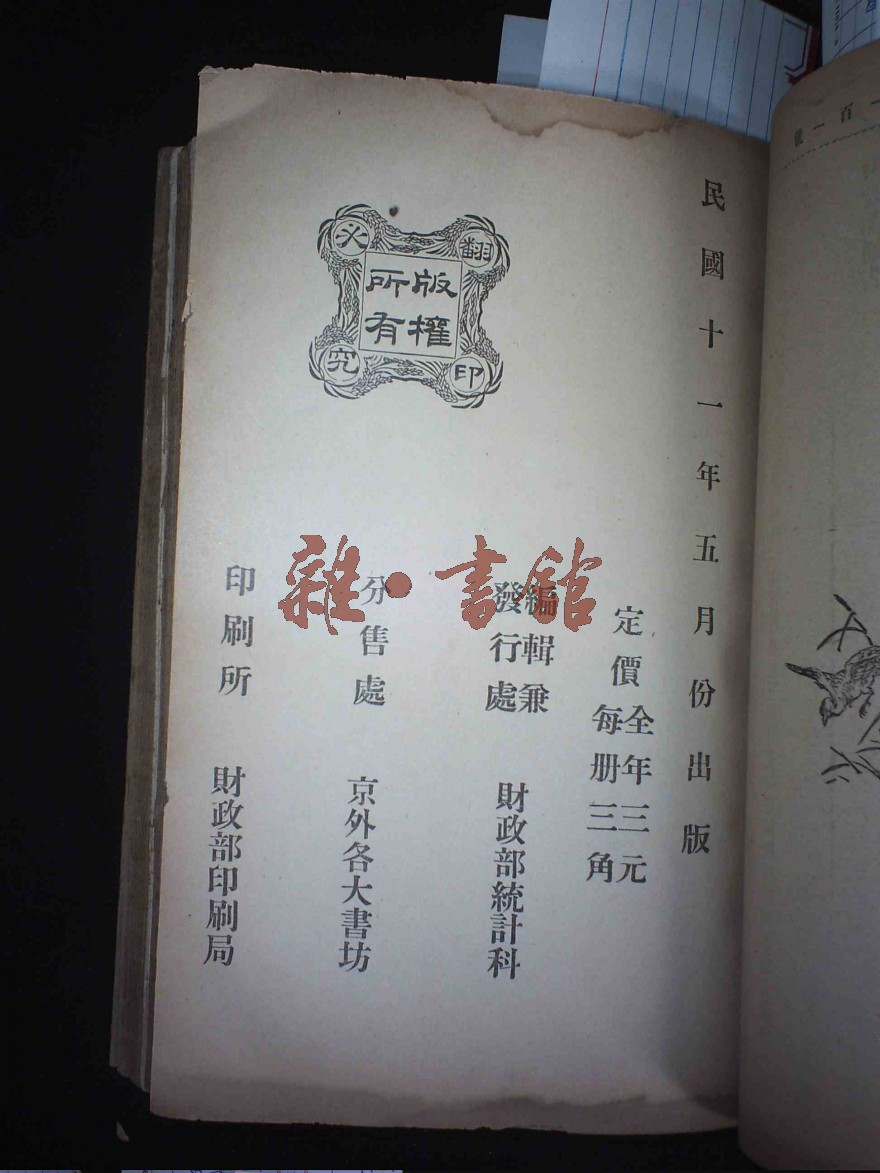 民國十一年五月份出版
定價
全年三元
每册三角
編輯兼
發行處
財政部統計科
分售處
京外各大書坊
印刷所
財政部印刷局
版權
所有
翻印
必究
雜·書館
百一號